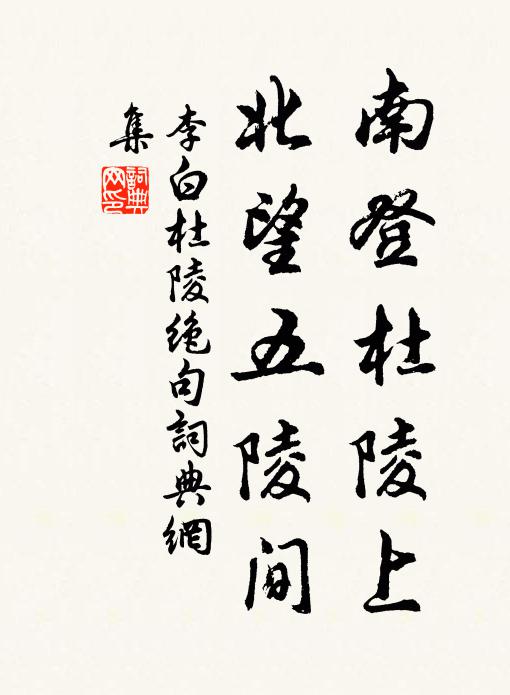 南登杜陵上
北望五陵间
李白杜陵绝句詞典網
集
詞典網印